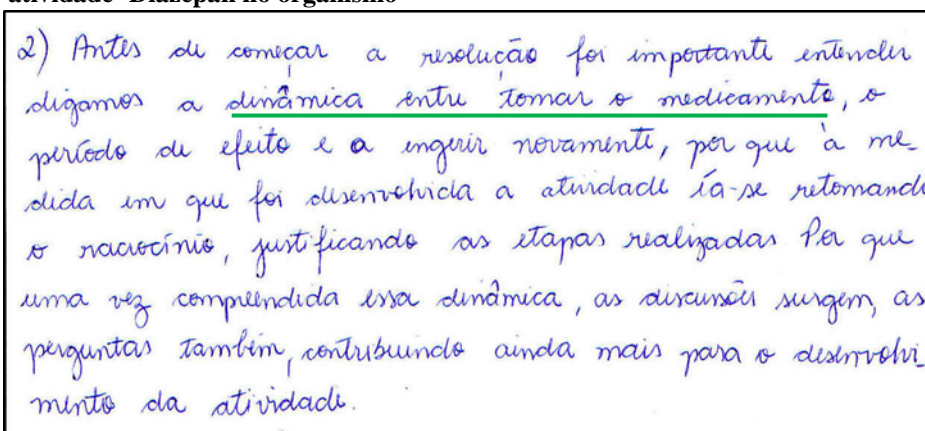 atividade "Diazepan no organismo"
2) Antes de começar a resolução foi importante entender
digamos a dinâmica entre tomar o medicamento, o
período de efeito e a ingerir novamente, por que à me_
dida em que foi desenvolvida a atividade ía-se retomando
o raciocínio, justificando as etapas realizadas Por que
uma vez compreendida essa dinâmica, as discursões surgem, as
perguntas também, contribuindo ainda mais para o desenvolvi_
mento da atividade.